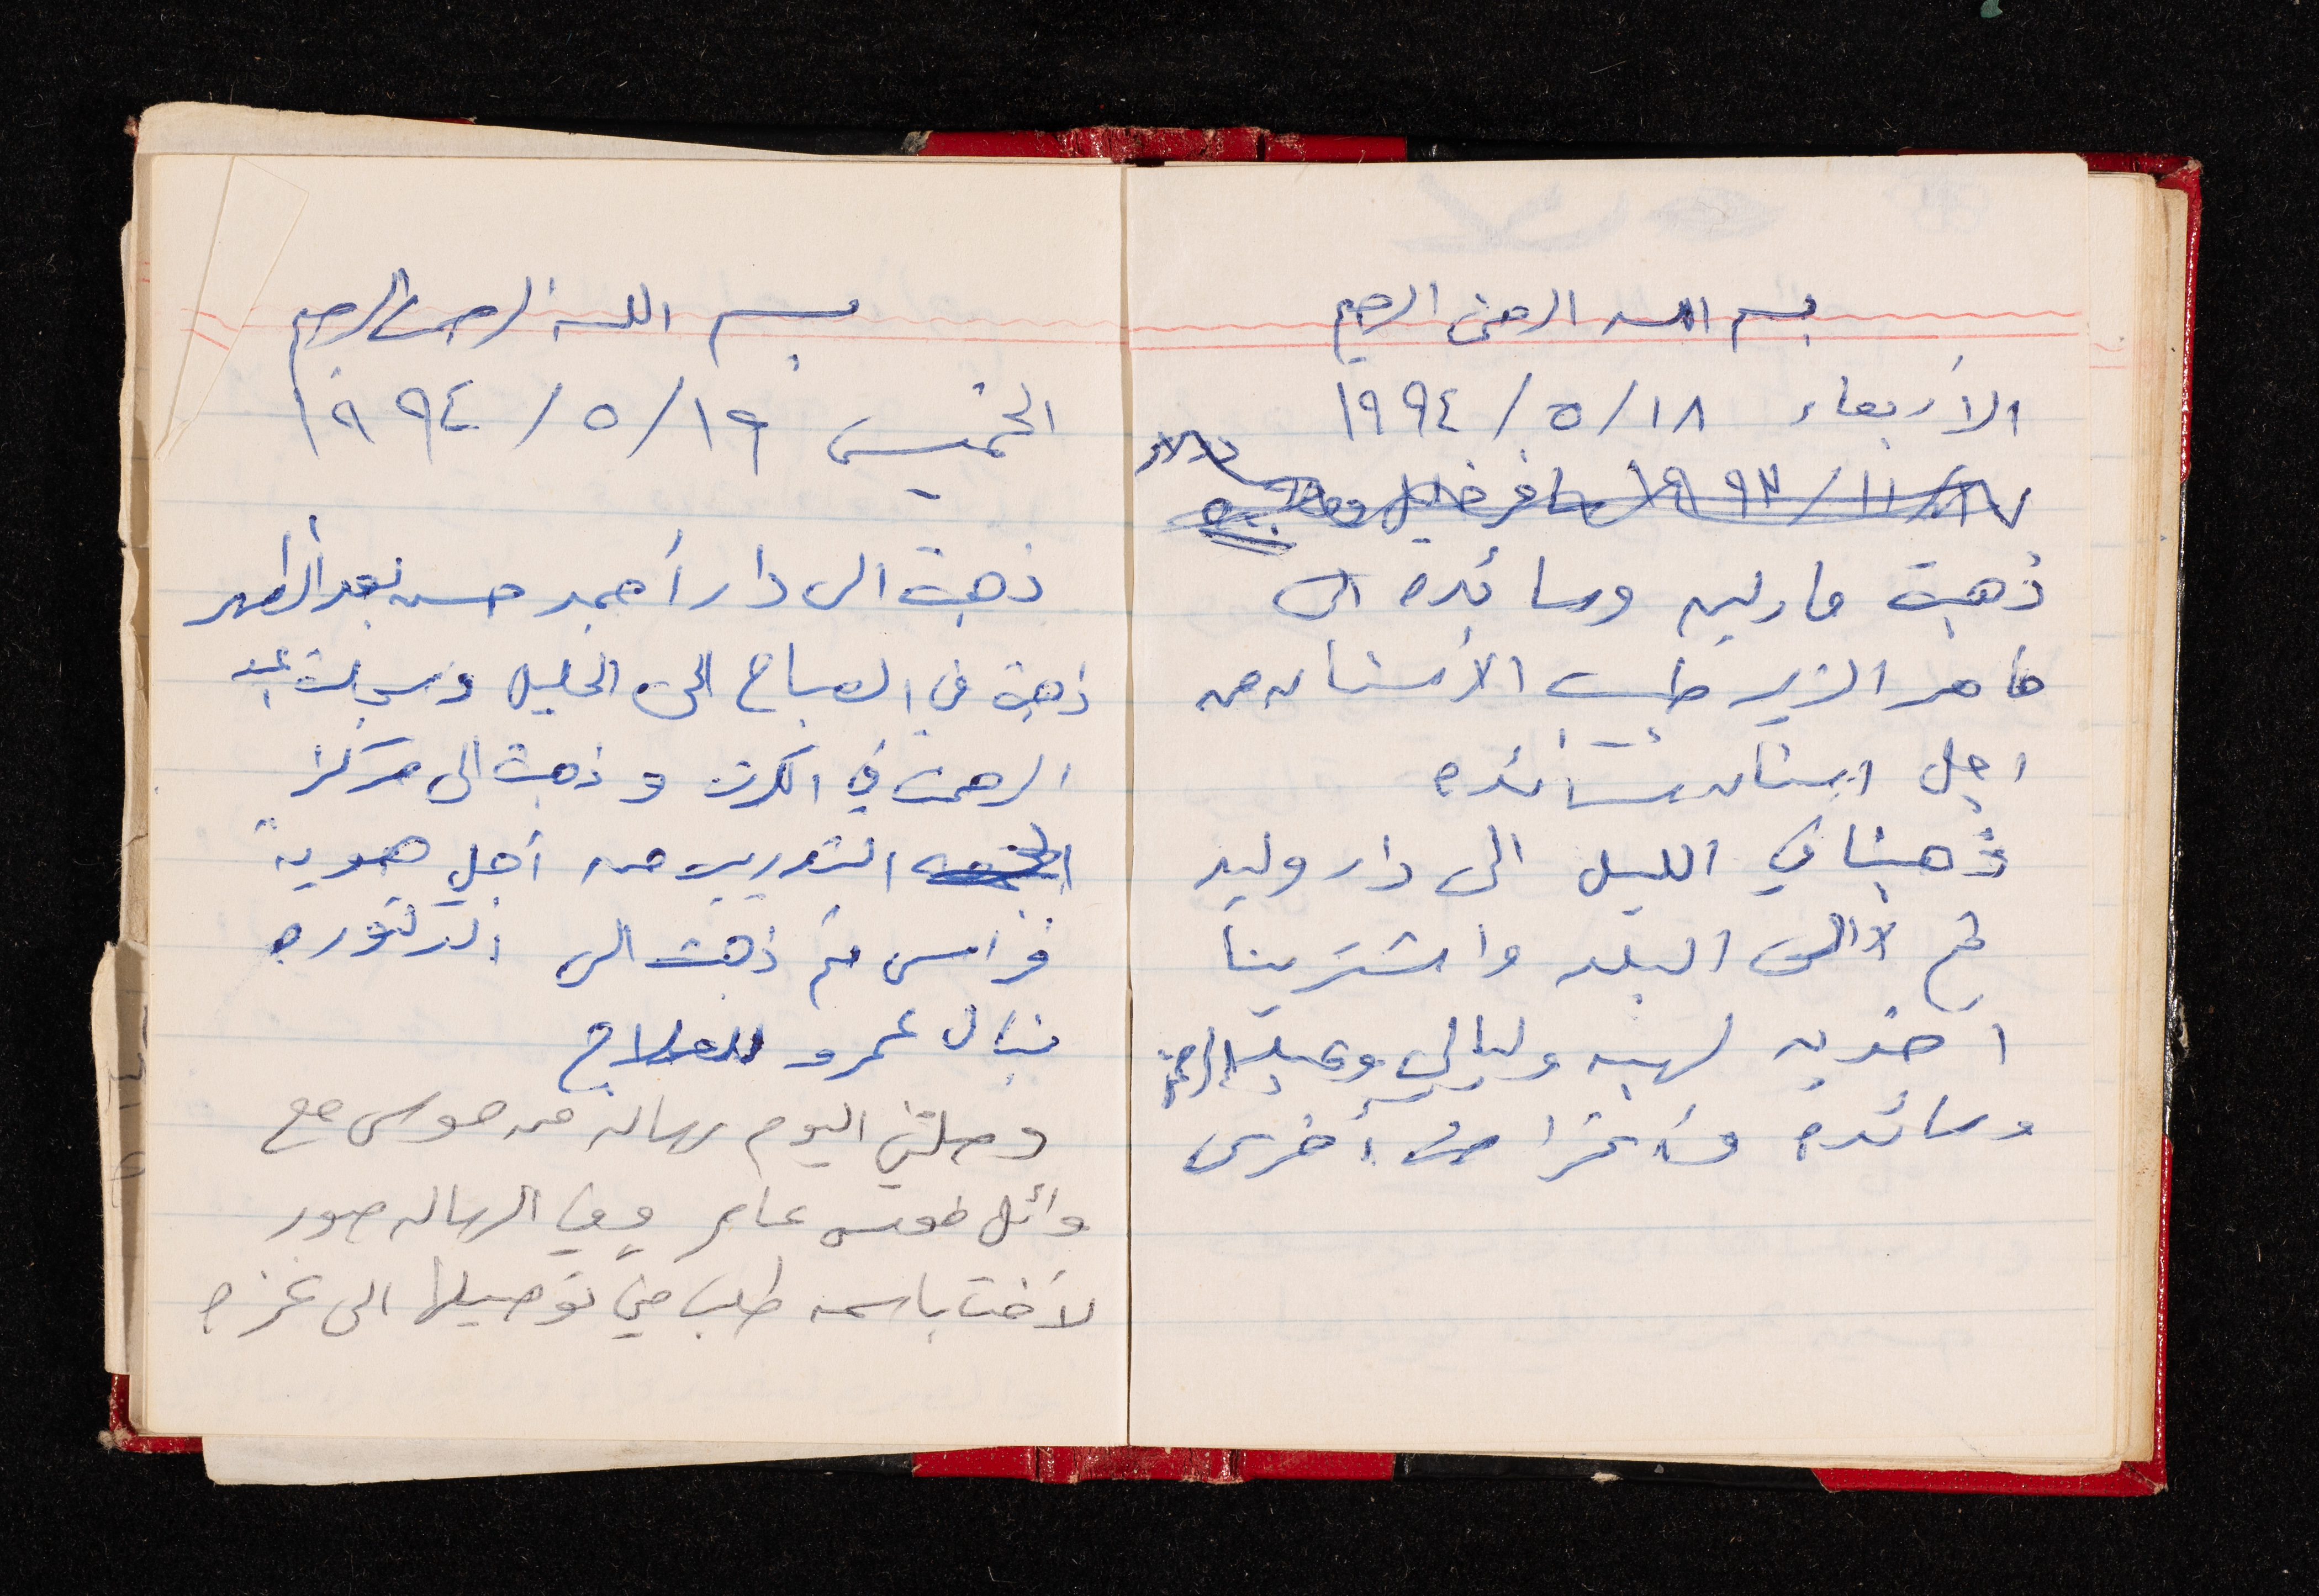 بسم الله الرحمن الرحيم
الأربعاء ١٨/٥/١٩٩٤
ذهبت مارلين وسائده الى
ماهر الزير طبيب الأسنان من
اجل اسنان سائده
ذهبنا في الليل الى دار وليد
ثم الى البلد واشترينا
احذيه لهبه وليالي وعبد الرحمن
وسائده وأغراض أخرى
بسم الله الرحمن الرحيم
الخميس ١٩/٥/١٩٩٤
ذهبت الى دار أحمد حسن بعد الظهر
ذهبت في الصباح الى الخليل وسجلت عبد
الرحمن في الكرت وذهبت الى مركز
التدريب من أجل هوية
فراس ثم ذهبت الى الدكتوره
نبال عمرو للعلاج
وصلتني اليوم رساله من موسى مع
وائل عامر وفي الرساله صور
لأخت باسمه طلب مني توصيلها الى غزه